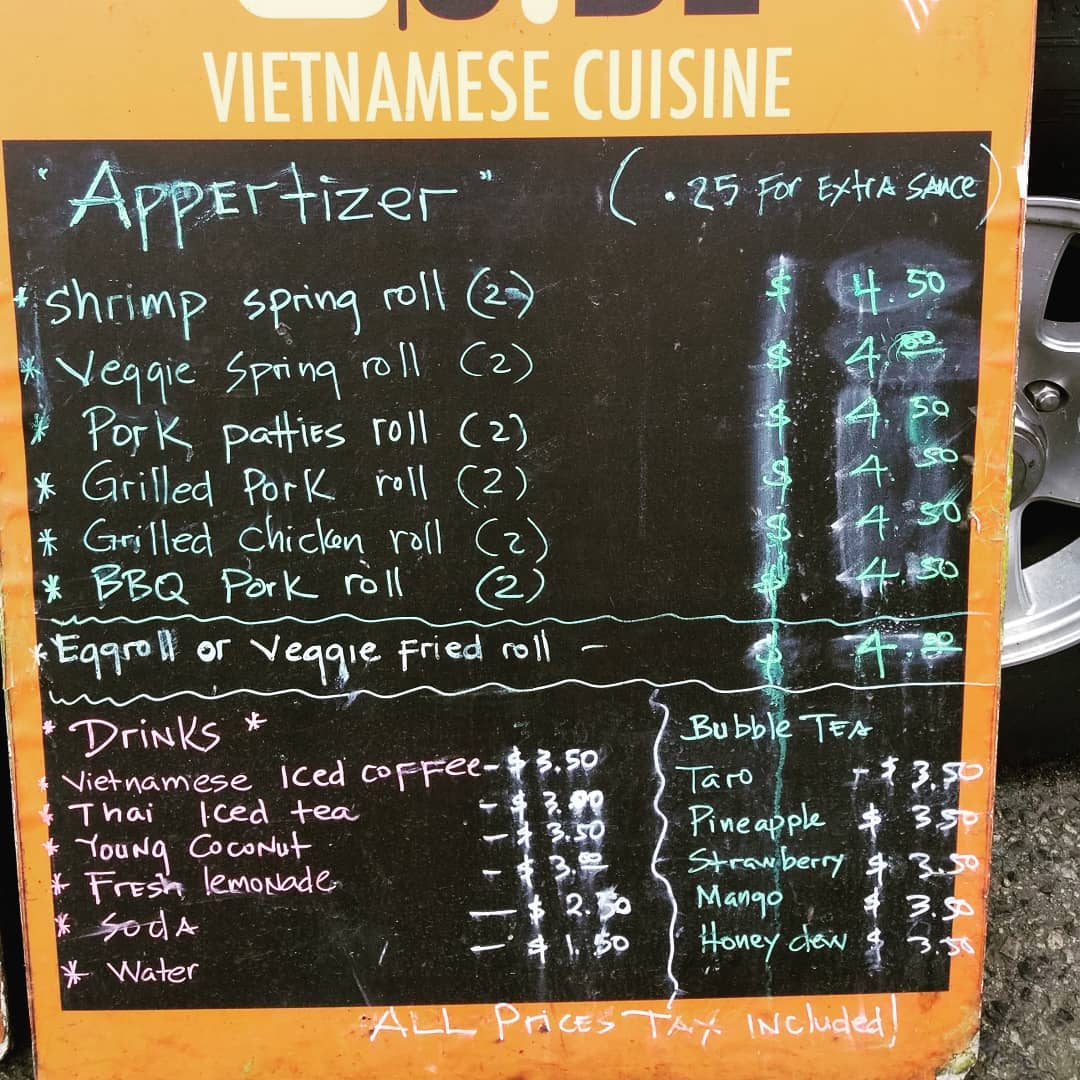 VIETNAMESE CUISINE
"Appertizer" (.25 For Extra Sauce)
* Shrimp spring roll (2) $ 4.50
* Veggie Spring roll (2) $ 4.00
* Pork patties roll (2) $ 4.50
* Grilled Pork roll (2) $ 4.50
* Grilled chicken roll (2) $ 4.50
* BBQ Pork roll (2) $ 4.50
* Eggroll or Veggie Fried roll - $ 4.00
* Drinks *
* Vietnamese Iced coffee - $ 3.50
* Thai Iced tea - $ 3.00
* Young Coconut - $ 3.50
* Fresh lemonade - $ 3.00
* Soda - $ 2.50
* Water - $ 1.50
Bubble Tea
Taro - $ 3.50
Pineapple $ 3.50
Strawberry $ 3.50
Mango $ 3.50
Honey dew $ 3.50
ALL Prices Tax included!